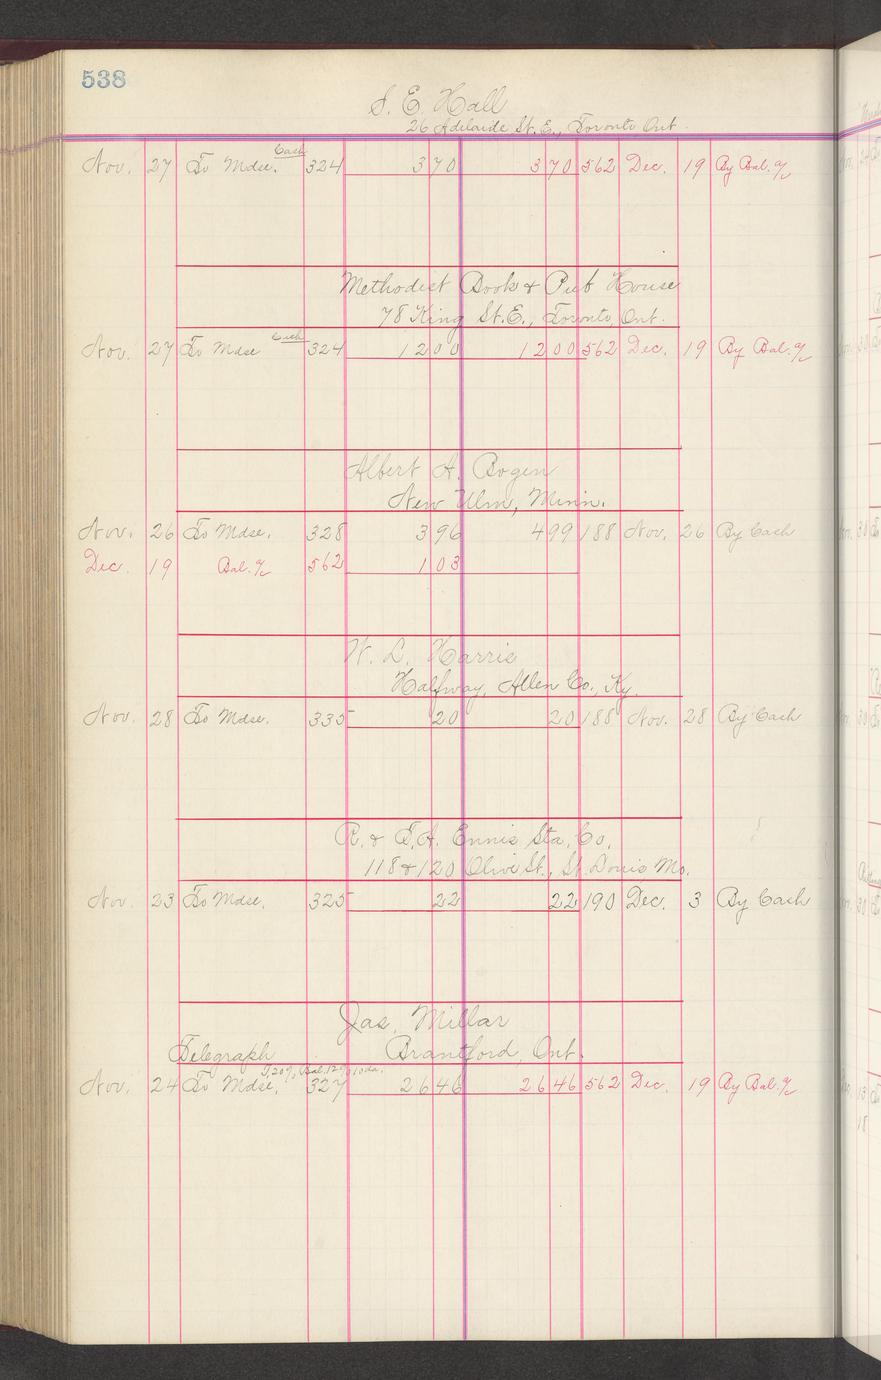 538
S. E. Hall
26 Adelaide St. E., Toronto Ont.
Cash
Nov. 27 To Mdse. 324 3 70 3 70 562 Dec. 19 By Bal. a/c
Methodist Book & Pub House
78 King St. E., Toronto, Ont.
Cash
Nov. 27 To Mdse 324 12 00 12 00 562 Dec. 19 By Bal. a/c
Albert A. Bogen
New Ulm, Minn.
Nov. 26 To Mdse. 328 3 96 4 99 188 Nov. 26 By Cash
Dec. 19 Bal. a/c 562 1 03
W. L. Harris
Halfway, Allen Co., Ky.
Nov. 28 To Mdse. 335 20 20 188 Nov. 28 By Cash
R. & T. A. Ennis Sta. Co.
118 & 120 Olive St., St. Louis Mo.
Nov. 23 To Mdse. 325 22 22 190 Dec. 3 By Cash
Jas. Millar
Telegraph Brantford, Ont.
Nov. 24 To Mdse. 327 26 46 26 46 562 Dec. 19 By Bal. a/c